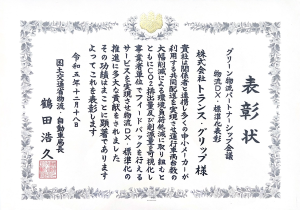 表彰状
グリーン物流パートナーシップ会議
物流DX・標準化表彰
株式会社トランス・グリップ様
貴社は関係者と連携し多くの中小メーカーが
利用する共同配送を実現させ運行車両台数の
大幅削減による環境負荷低減に取り組むと
ともにCO2排出量及び削減量を可視化し
事業者単位でフィードバックを行える
サービスを実現させ物流DX・標準化の
推進に多大な貢献をされました
その功績はまことに顕著であります
よってこれを表彰します
令和五年十二月十八日
国土交通省物流・自動車局長
鶴田浩久